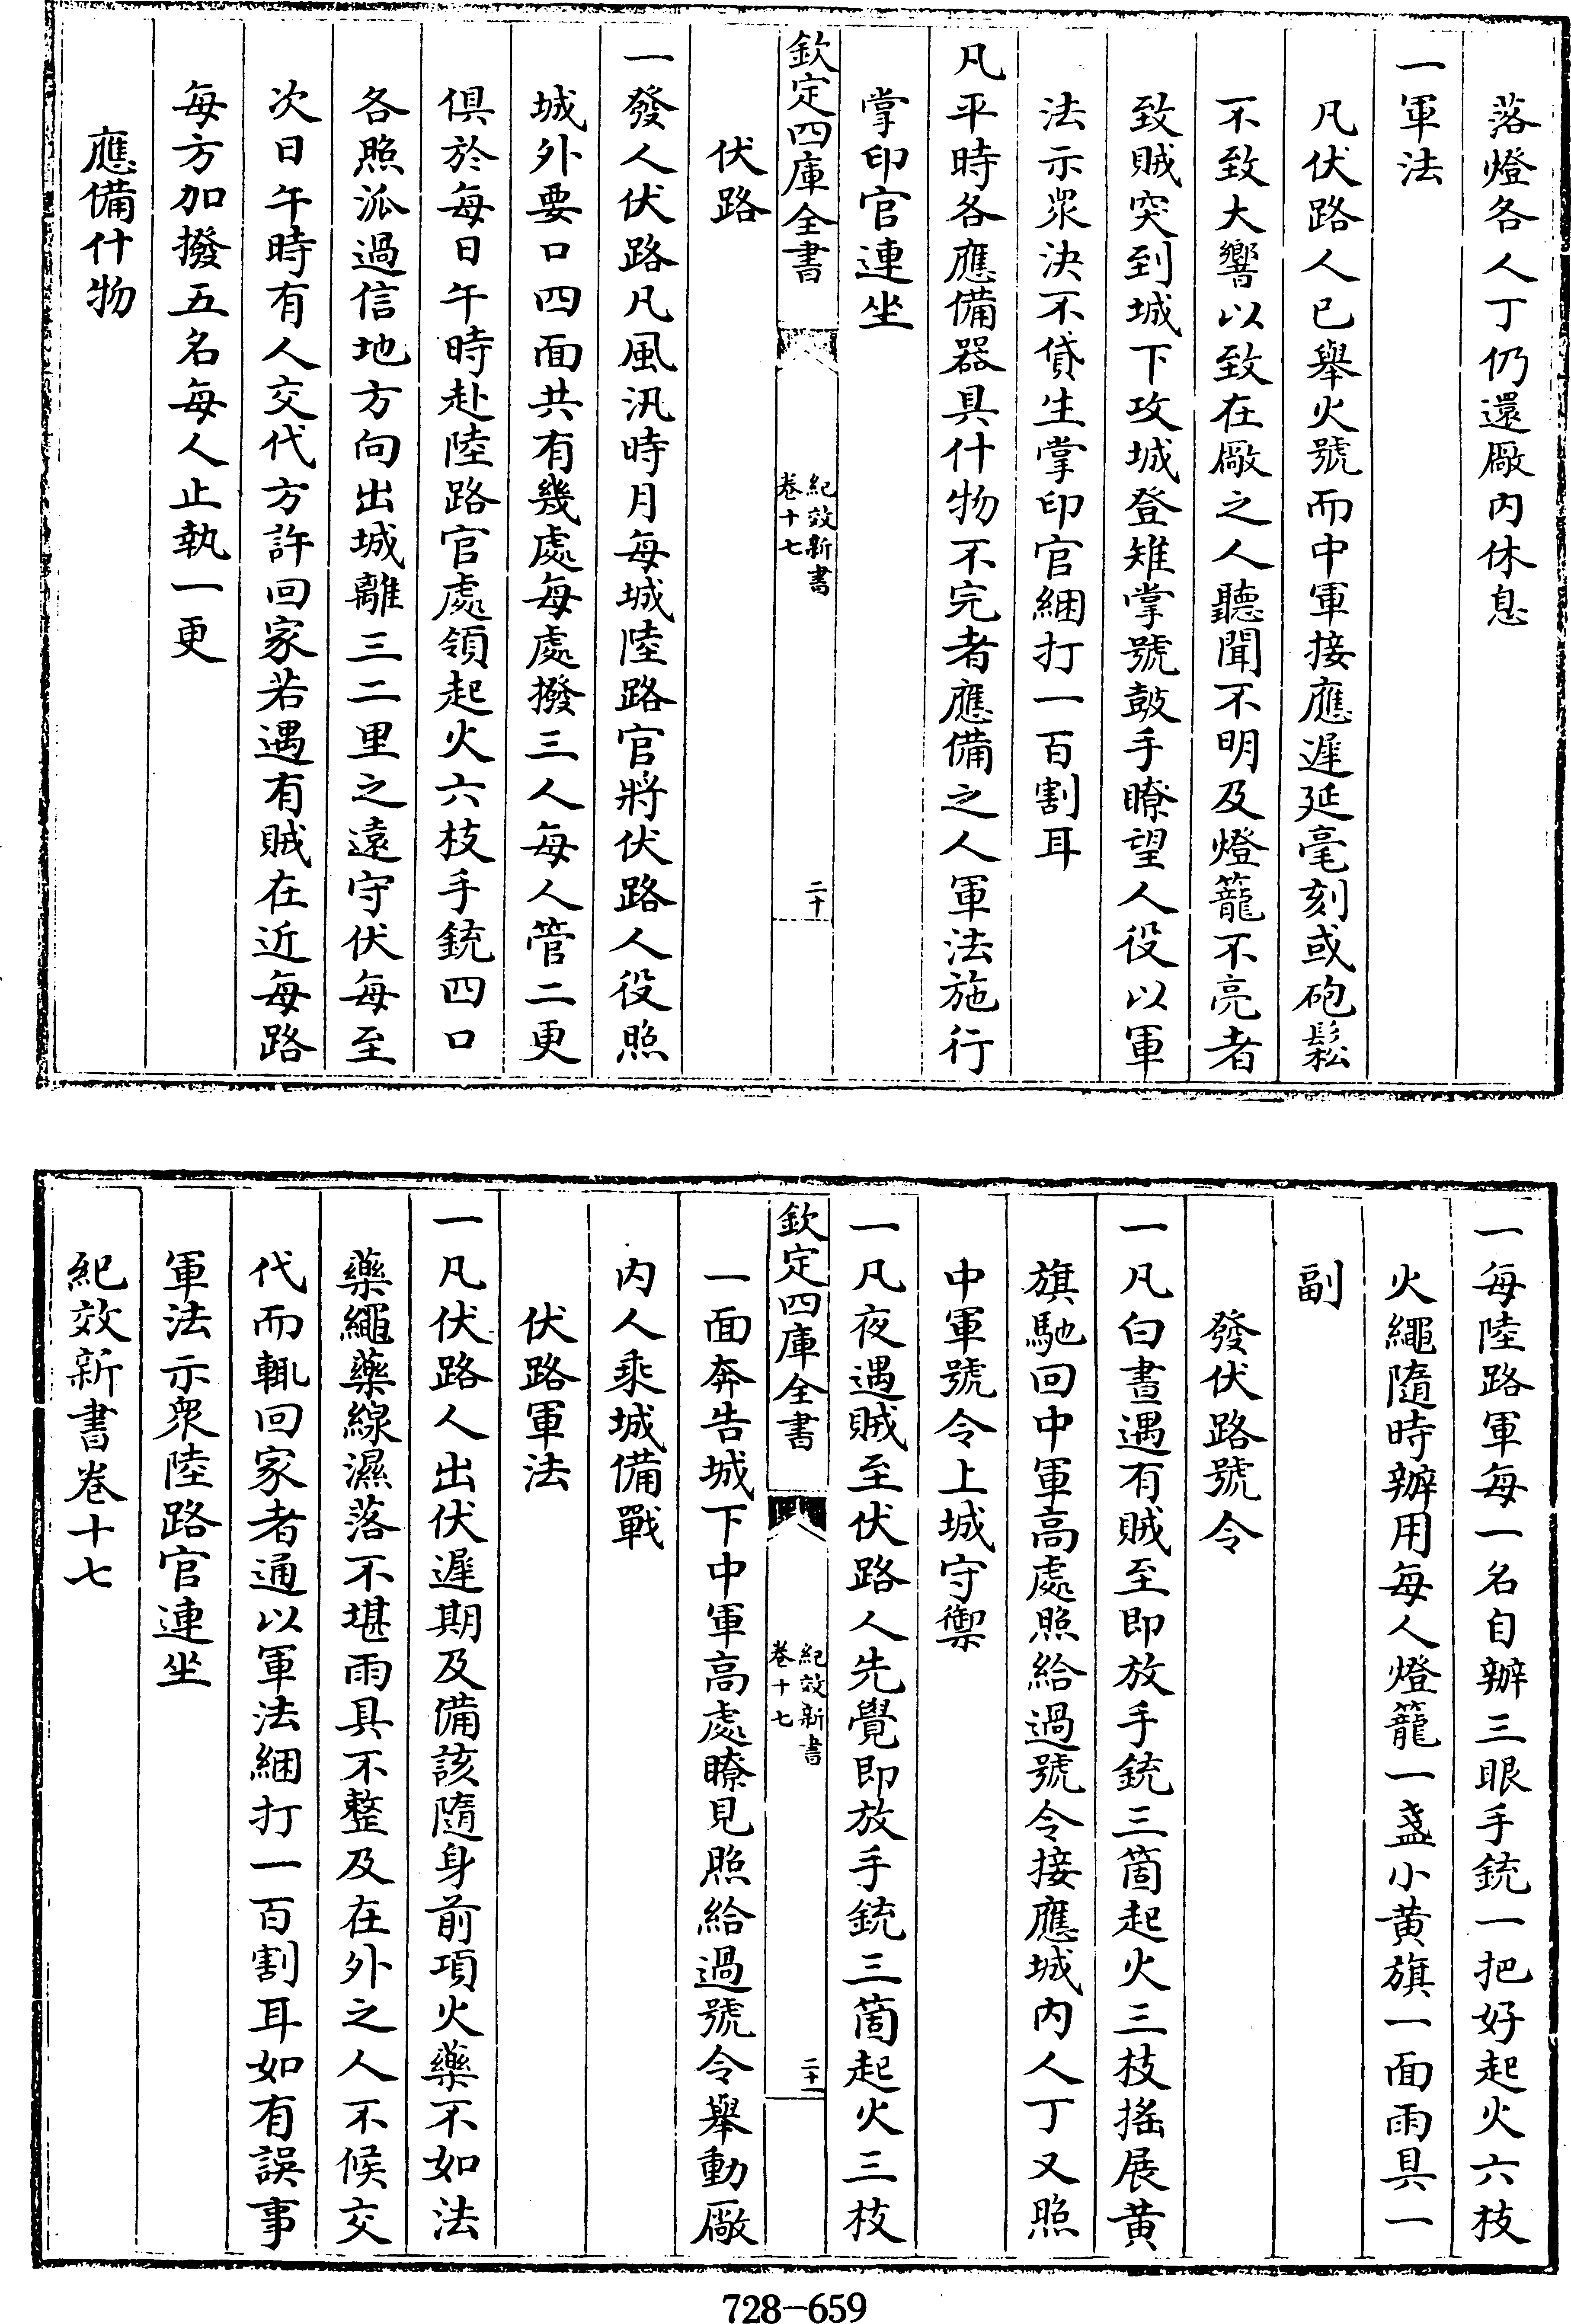 落燈各人丁仍還厰内休息
一軍法
凡伏路人已舉火號而中軍接應遲延毫刻或砲鬆
不致大響以致在厰之人聽聞不明及燈籠不亮者
致賊突到城下攻城登雉掌號鼓手瞭望人役以軍
法示衆決不貸生掌印官綑打一百割耳
凡平時各應備器具什物不完者應備之人軍法施行
掌印官連坐
欽定四庫全書
紀效新書
卷十七
二十
伏路
一發人伏路凡風汛時月每城陸路官將伏路人役照
城外要口四面共有幾處每處撥三人每人管二更
俱於每日午時赴陸路官處領起火六枝手銃四口
各照派過信地方向出城離三二里之遠守伏每至
次日午時有人交代方許回家若遇有賊在近每路
每方加撥五名每人止執一更
應備什物
一每陸路軍每一名自辦三眼手銃一把好起火六枝
火繩隨時辦用每人燈籠一盞小黄旗一面雨具一
副
發伏路號令
一凡白晝遇有賊至即放手銃三箇起火三枝搖展黄
旗馳回中軍高處照給過號令接應城内人丁又照
中軍號令上城守禦
一凡夜遇賊至伏路人先覺即放手銃三箇起火三枝
欽定四庫全書
紀效新書
卷十七
二十一
一面奔告城下中軍高處瞭見照給過號令舉動厰
内人乘城備戰
伏路軍法
一凡伏路人出伏遲期及備該隨身前項火藥不如法
藥繩藥線濕落不堪雨具不整及在外之人不候交
代而輒回家者通以軍法綑打一百割耳如有誤事
軍法示衆陸路官連坐
紀效新書卷十七
728-659